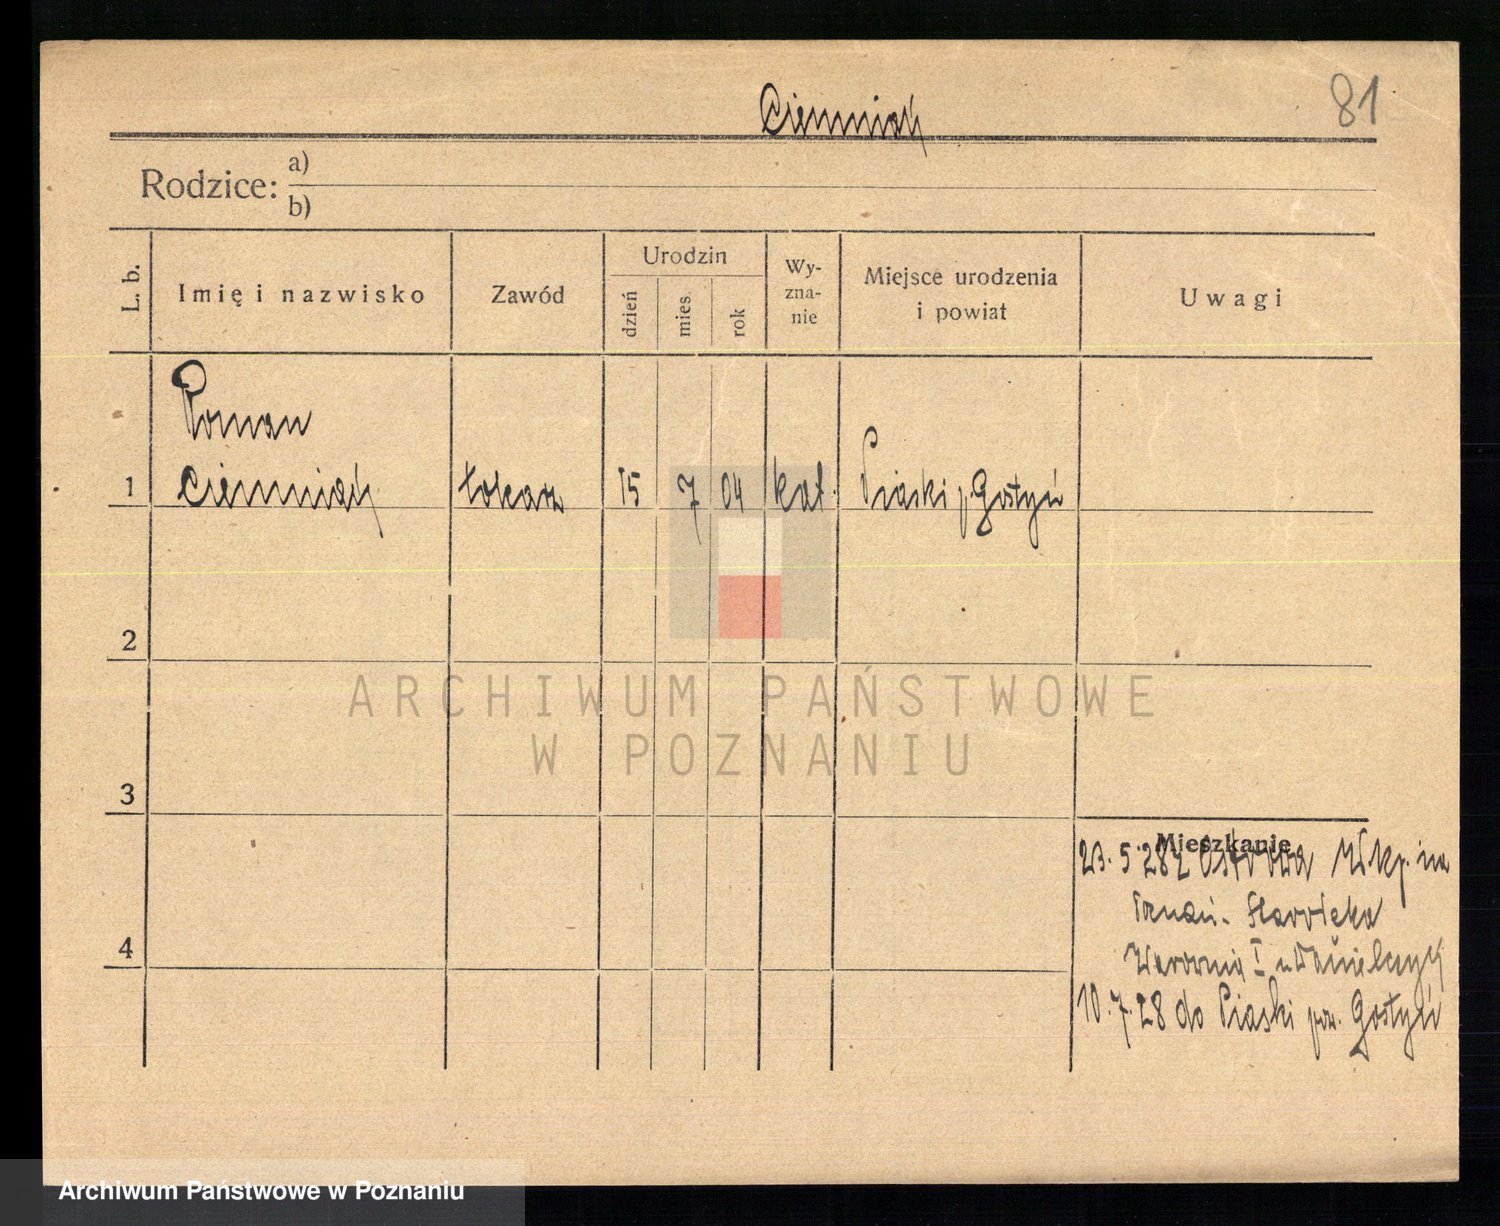 Ciemniak
81
Rodzice:
a)
b)
L. b.
Imię i nazwisko
Zawód
Urodzin
dzień
mies.
rok
Wy-
zna-
nie
Miejsce urodzenia
i powiat
Uwagi
Roman
1 Ciemniak tokarz 15 7 04 kat. Piaski p. Gostyń
2
ARCHIWUM PAŃSTWOWE
W POZNANIU
3
Mieszkanie
23. 5. 28 z Ostrowa Wlkp. na
Poznań.
I u
4
10. 7. 28 do Piaski pow. Gostyń
Archiwum Państwowe w Poznaniu